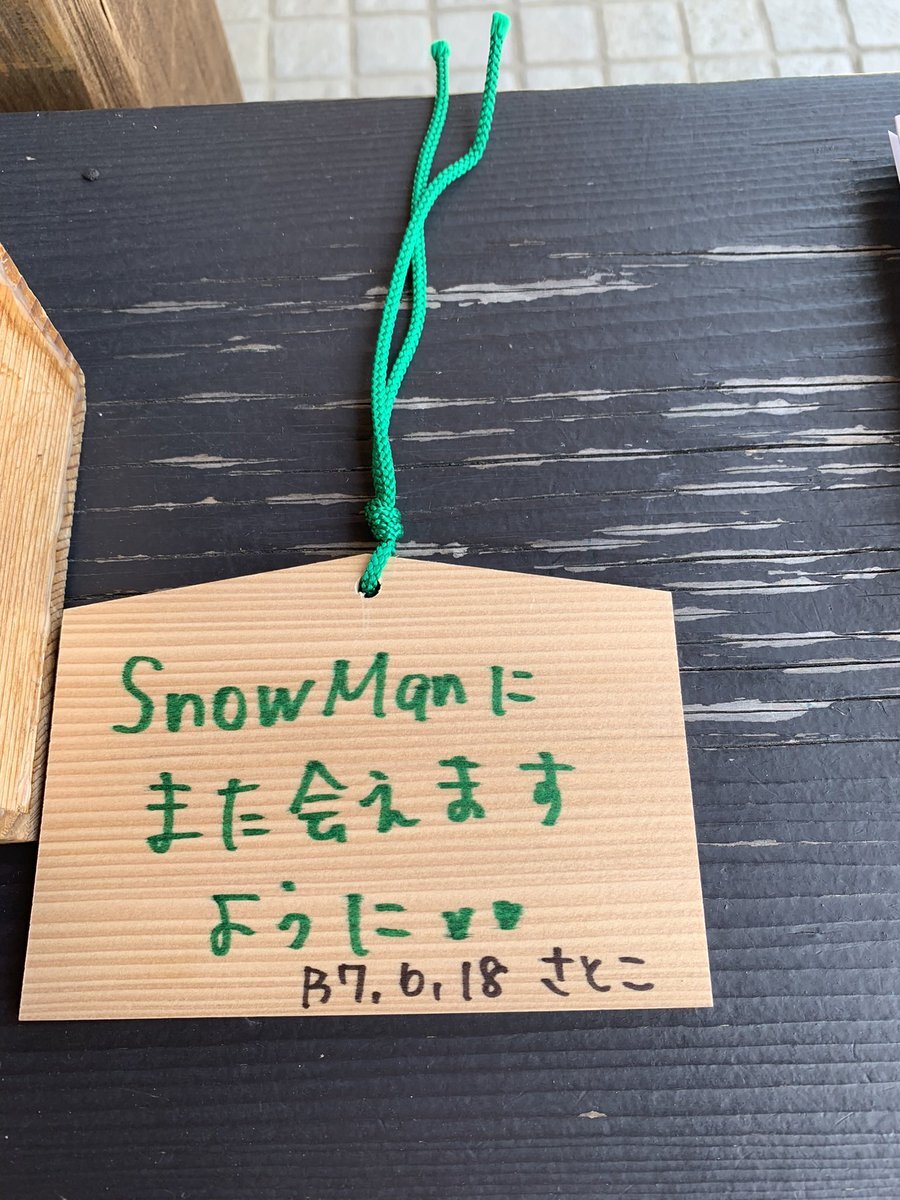 SnowManに
また会えます
ように♥♥
R7.6.18 さとこ